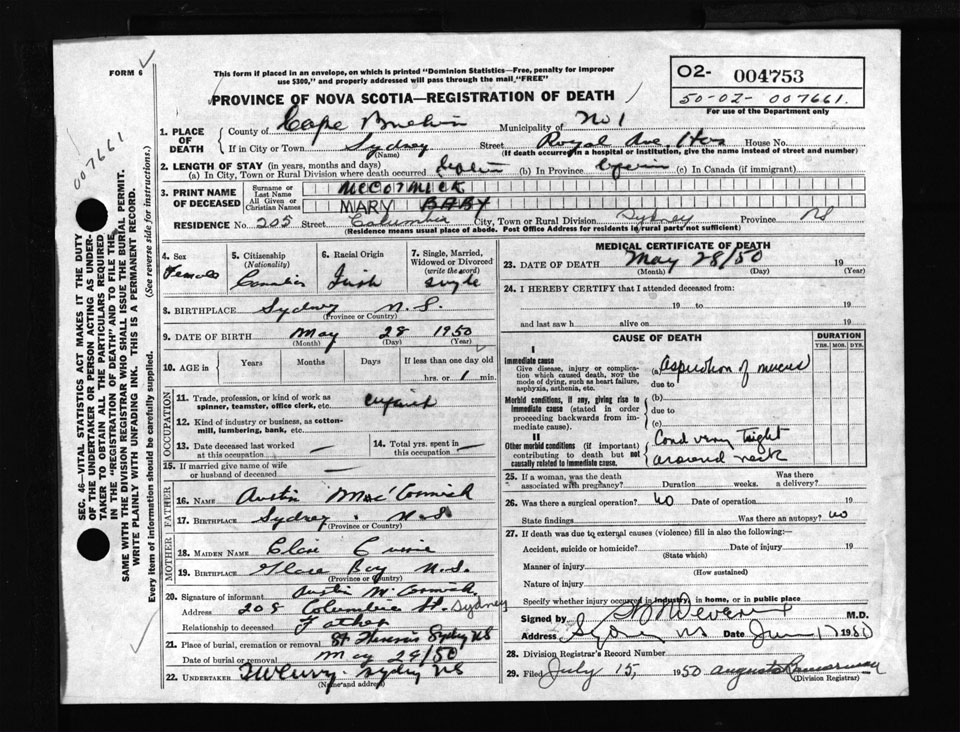 FORM 6
This form if placed in an envelope, on which is printed "Dominion Statistics—Free, penalty for improper
use $300," and properly addressed will pass through the mail "FREE"
O2- 004753
50-02-007661.
For use of the Department only
PROVINCE OF NOVA SCOTIA—REGISTRATION OF DEATH
007661
SEC. 46—VITAL STATISTICS ACT MAKES IT THE DUTY
OF THE UNDERTAKER OR PERSON ACTING AS UNDER-
TAKER TO OBTAIN ALL THE PARTICULARS REQUIRED
IN THE "REGISTRATION OF DEATH" AND TO FILE THE
SAME WITH THE DIVISION REGISTRAR WHO SHALL ISSUE THE BURIAL PERMIT.
WRITE PLAINLY WITH UNFADING INK. THIS IS A PERMANENT RECORD.
Every item of information should be carefully supplied. (See reverse side for instructions.)
1. PLACE OF DEATH
County of Cape Breton Municipality of No 1
If in City or Town Sydney Street Royal Ave, House No.
(Name) (If death occurred in a hospital or institution, give the name instead of street and number)
2. LENGTH OF STAY (in years, months and days)
(a) In City, Town or Rural Division where death occurred (b) In Province (c) In Canada (if immigrant)
3. PRINT NAME OF DECEASED
Surname or Last Name McCORMICK
All Given or Christian Names MARY BABY
RESIDENCE No 205 Street Columbia City, Town or Rural Division Sydney Province NS
(Residence means usual place of abode. Post Office Address for residents in rural parts not sufficient)
4. Sex Female
5. Citizenship (Nationality) Canadian
6. Racial Origin Irish
7. Single, Married, Widowed or Divorced (write the word) single
8. BIRTHPLACE Sydney N.S.
(Province or Country)
9. DATE OF BIRTH May 28 1950
(Month) (Day) (Year)
10. AGE in Years Months Days If less than one day old
hrs. or 1 min.
OCCUPATION
11. Trade, profession, or kind of work as
spinner, teamster, office clerk, etc. infant
12. Kind of industry or business, as cotton-
mill, lumbering, bank, etc.
13. Date deceased last worked at this occupation —
14. Total yrs. spent in this occupation —
15. If married give name of wife
or husband of deceased —
FATHER
16. NAME Austin MacCormick
17. BIRTHPLACE Sydney N.S.
(Province or Country)
MOTHER
18. MAIDEN NAME Currie
19. BIRTHPLACE Glace Bay N.S.
(Province or Country)
20. Signature of informant Austin McCormick
Address 208 Columbia St. Sydney
Relationship to deceased Father
21. Place of burial, cremation or removal Sydney NS
Date of burial or removal May 29/50
22. UNDERTAKER Sydney NS
(Name and address)
MEDICAL CERTIFICATE OF DEATH
23. DATE OF DEATH May 28/50 19
(Month) (Day) (Year)
24. I HEREBY CERTIFY that I attended deceased from:
19 to 19
and last saw h alive on 19
CAUSE OF DEATH
DURATION
YRS. MOS. DYS.
I
Immediate cause
Give disease, injury or complica-
tion which caused death, NOT the
mode of dying, such as heart failure,
asphyxia, asthenia, etc.
(a) Aspiration of mucus
due to
Morbid conditions, if any, giving rise to
immediate cause (stated in order
proceeding backwards from im-
mediate cause).
(b)
due to
(c)
II
Other morbid conditions (if important)
contributing to death but not
causally related to immediate cause.
Cord very tight
around neck
25. If a woman, was the death
associated with pregnancy? Duration weeks. Was there a delivery?
26. Was there a surgical operation? No Date of operation 19
State findings Was there an autopsy? no
27. If death was due to external causes (violence) fill in also the following:
Accident, suicide or homicide? Date of injury 19
(State which)
Manner of injury
(How sustained)
Nature of injury
Specify whether injury occurred in industry, in home, or in public place
Signed by M.D.
Address Sydney NS Date June 17 1950
28. Division Registrar's Record Number
29. Filed July 15, 1950 Augusta
(Division Registrar)